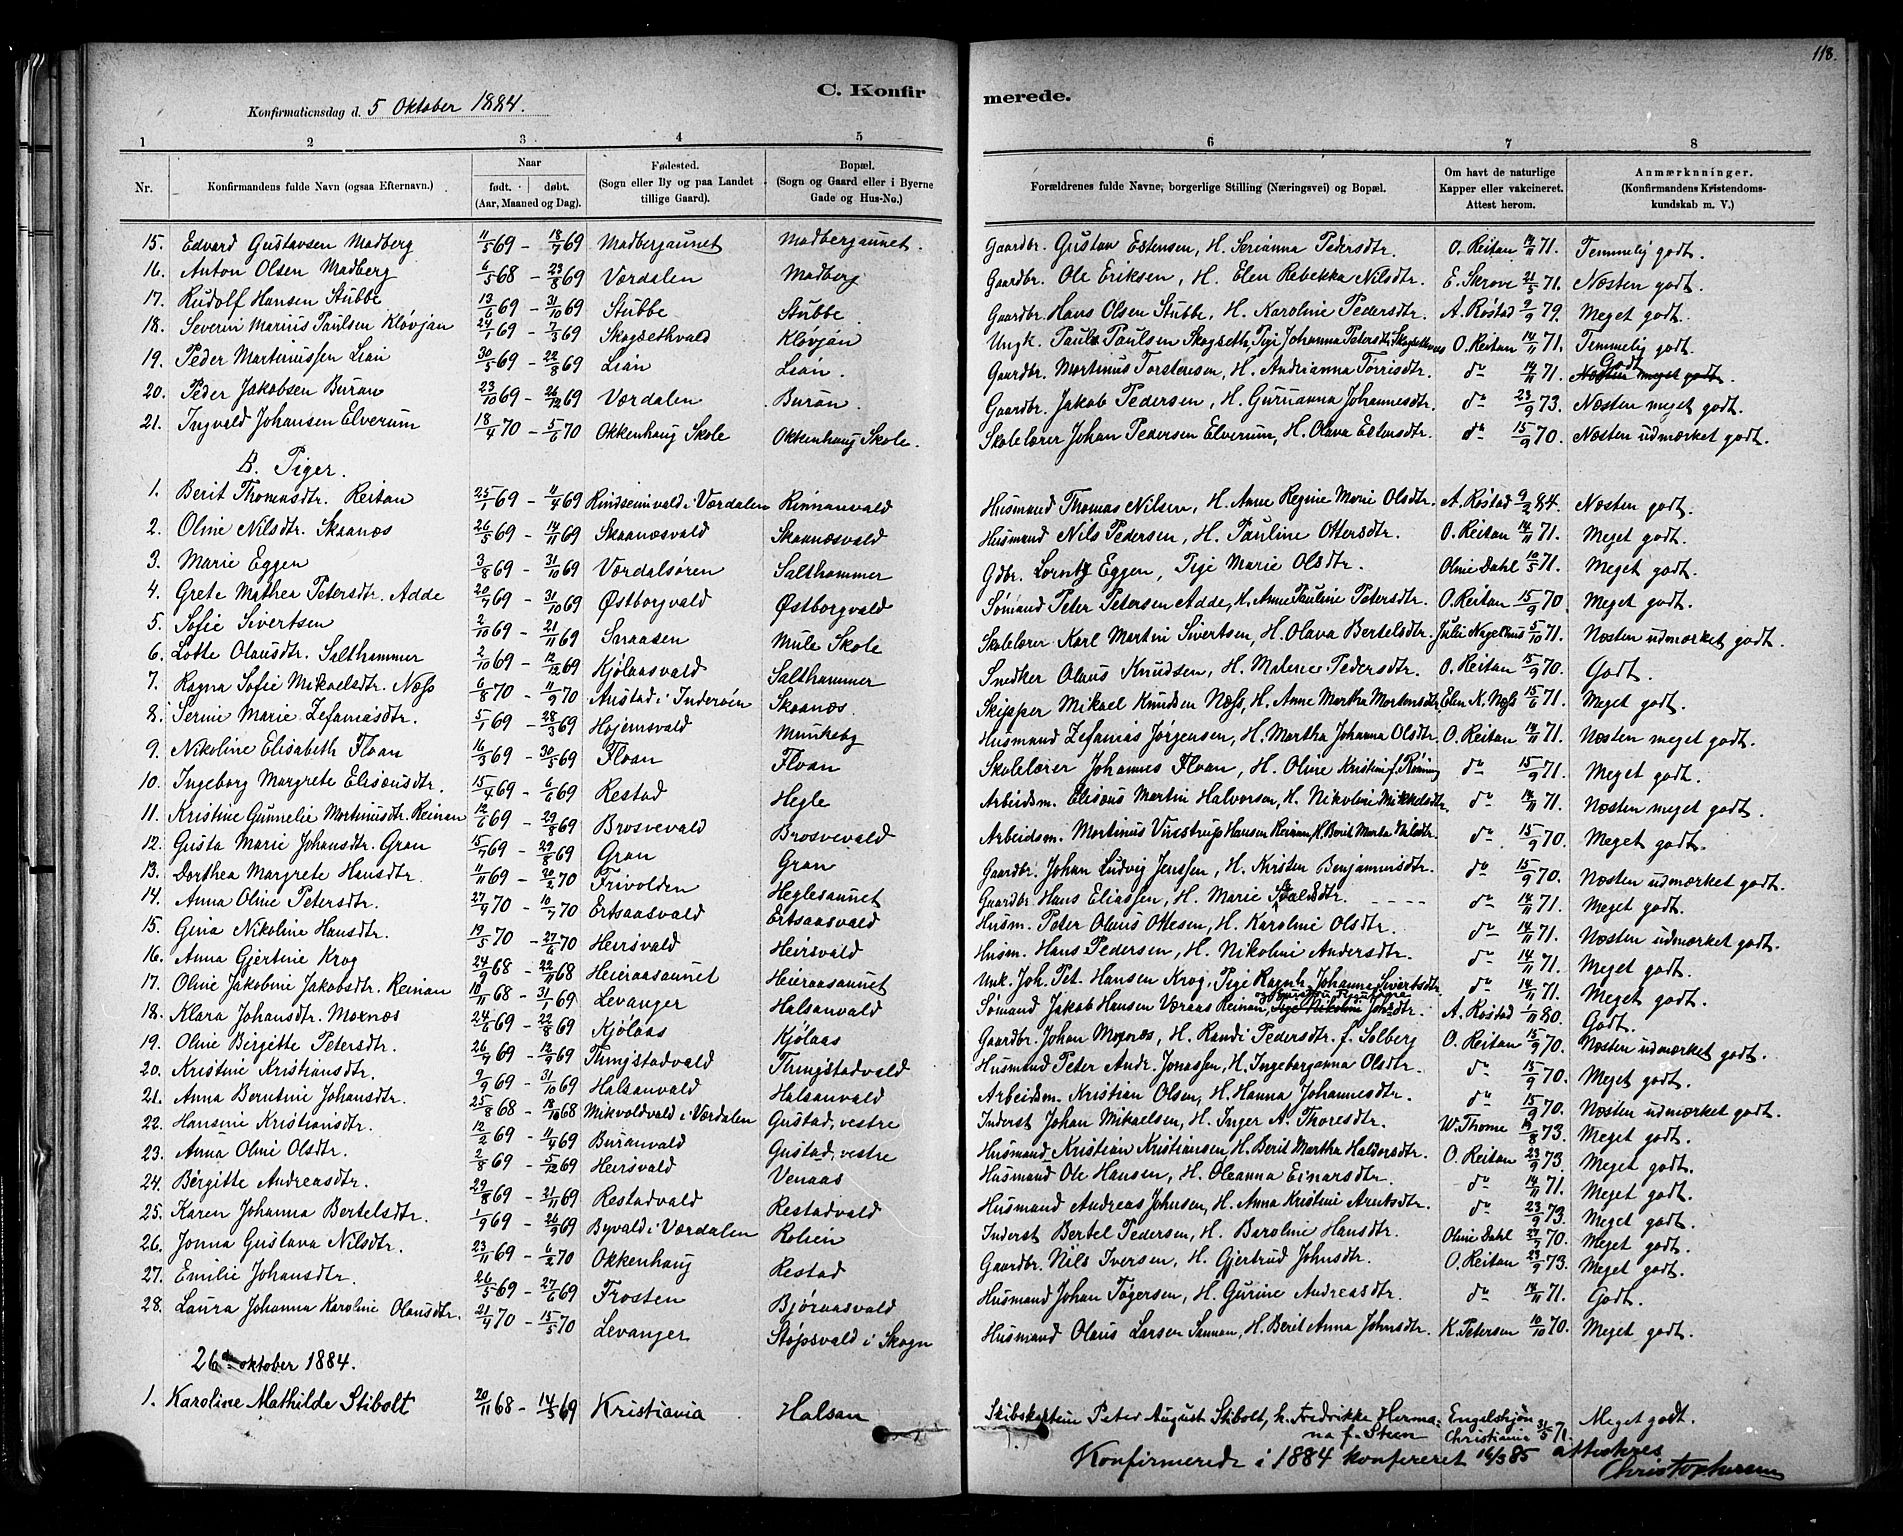 118.
C. Konfirmerede.
Konfirmationsdag d. 5 Oktober 1884.
1 2 3 4 5 6 7 8
Nr. Konfirmandens fulde Navn (ogsaa Efternavn.) Naar født. døbt. (Aar, Maaned og Dag). Fødested. (Sogn eller By og paa Landet tillige Gaard). Bopæl. (Sogn og Gaard eller i Byerne Gade og Hus-No.) Forældrenes fulde Navne, borgerlige Stilling (Næringsvei) og Bopæl. Om havt de naturlige Kapper eller vakcineret. Attest herom. Anmærknninger. (Konfirmandens Kristendomskundskab m. V.)
15. Edvard Gustavsen Madberg 11/5 69 - 18/7 69 Madbergaunet Madbergaunet. Gaardbr. Gustav Estensen, H. Serianna Pedersdtr. O. Reitan 14/11 71. Temmelig godt.
16. Anton Olsen Madberg 6/5 68 - 23/8 69 Værdalen Madberg Gaardbr. Ole Eriksen, H. Elen Rebekka Nilsdtr. E. Skrove 21/5 71. Næsten godt.
17. Rudolf Hansen Stubbe 13/6 69 - 31/10 69 Stubbe Stubbe Gaardbr. Hans Olsen Stubbe, H. Karoline Pedersdtr. A. Røstad 9/9 79. Meget godt.
18. Severin Marius Paulsen Kløvjan 24/1 69 - 7/3 69 Skogsethvald Kløvjan Ungk. Paul Paulsen Skogseth Pige Johanna Petersdtr. O. Reitan 14/11 71. Temmelig godt.
19. Peder Martinussen Lian 30/5 69 - 22/8 69 Lian Lian. Gaardbr. Martinus Torstensen, H. Andrianna Tørrisdtr. do 14/11 71. Godt Næsten meget godt.
20. Peder Jakobsen Buran 23/10 69 - 26/12 69 Værdalen Buran. Gaardbr. Jakob Pedersen, H. Guruanna Johannesdtr. do 23/9 73. Næsten meget godt.
21. Ingvald Johansen Elverum 18/4 70 - 5/6 70 Okkenhaug Skole Okkenhaug Skole. Skolelærer Johan Pedersen Elverum, H. Olava Estensdtr. do 15/9 70. Næsten udmærket godt.
B. Piger.
1. Berit Thomasdtr. Reitan 25/1 69 - 11/4 69 Rindsemvald i Værdalen Rinnanvald Husmand Thomas Nilsen, H. Anne Regine Marie Olsdtr. A. Røstad 9/2 84. Næsten godt.
2. Oline Nilsdtr. Skaanæs 26/5 69 - 14/11 69 Skaanæsvald Skaanæsvald Husmand Nils Pedersen, H. Pauline Ottersdtr. O. Reitan 14/11 71. Meget godt.
3. Marie Eggen 3/8 69 - 31/10 69 Værdalsøren Salthammer Gdbr. Lorntz Eggen, Pige Marie Olsdtr. Oline Dahl 10/5 71. Meget godt.
4. Grete Mathea Petersdtr. Adde 20/7 69 - 31/10 69 Østborgvald Østborgvald Sømand Peter Petersen Adde, H. Anne Pauline Petersdtr. O. Reitan 15/9 70. Meget godt.
5. Sofie Sivertsen 2/10 69 - 21/11 69 Snaasen Mule Skole Skolelærer Karl Martin Sivertsen, H. Olava Bertelsdtr. Julie Nagelhus 5/10 71. Næsten udmærket godt.
6. Lotte Olausdtr. Salthammer 2/10 69 - 12/12 69 Kjølaasvald Salthammer Snedker Olaus Knudsen, H. Malene Pedersdtr. O. Reitan 15/9 70. Godt.
7. Ragna Sofie Mikaelsdtr. Næss 6/8 70 - 11/9 70 Austad i Inderøen Skaanæs. Skipper Mikael Knudsen Næss, H. Anne Martha Mortensdtr. Elen K. Næss 15/6 71. Meget godt.
8. Serine Marie Zefaniasdtr. 5/1 69 - 28/3 69 Hojemsvald Munkeby Husmand Zefanias Jørgensen, H. Martha Johanna Olsdtr. O. Reitan 14/11 71. Næsten meget godt.
9. Nikoline Elisabeth Floan 16/3 69 - 30/5 69 Floan Floan Skolelærer Johannes Floan, H. Oline Kristine f. Röning do 15/9 71. Meget godt.
10. Ingeborg Margrete Elisæusdtr. 15/4 69 - 6/6 69 Restad Hegle Arbeidsm. Elisæus Martin Halvorsen, H. Nikoline Mikkelsdtr. do 14/11 71. Næsten meget godt.
11. Kristine Gunnelie Martinusdtr. Reinan 12/6 69 - 29/8 69 Brosvevald Brosvevald Arbeidsm. Martinus Hansen Reinan, H. Berit Marta Nilsdtr. do 15/9 70. Meget godt.
12. Gusta Marie Johansdtr. Gran 15/7 69 - 29/8 69 Gran Gran Gaardbr. Johan Ludvig Jenssen, H. Kirsten Benjaminsdtr. do 15/9 70. Næsten udmærket godt.
13. Dorthea Margrete Hansdtr. 11/11 69 - 20/2 70 Frivolden Heglesaunet Gaardbr. Hans Eliassen, H. Marie do 14/11 71. Meget godt.
14. Anna Oline Petersdtr. 27/4 70 - 10/7 70 Ertsaasvald Ertsaasvald Husm. Peter Olaus Ottesen, H. Karoline Olsdtr. do 14/11 71. Næsten udmærket godt.
15. Gina Nikoline Hansdtr. 19/5 70 - 27/6 70 Heirsvald Heirsvald Husm. Hans Pedersen, H. Nikoline Andersdtr. do 14/11 71. Meget godt.
16. Anna Gjertine Krog 24/9 68 - 22/11 68 Heieraasaunet Heieraasaunet Unk. Joh. Pet. Hansen Krog, Pige Ragnh. Johanna Sivertsdtr. do 14/11 71. Meget godt.
17. Oline Jakobine Jakobsdtr. Reinan 10/11 68 - 31/1 69 Levanger Halsanvald Sømand Jakob Hansen Væraas Reinan, Pige Nikoline Johsdtr. A. Røstad 1/11 80. Godt.
18. Klara Johansdtr. Moxnæs 24/6 69 - 22/8 69 Kjølaas Kjølaas Gaardbr. Johan Moxnæs, H. Randi Pedersdtr. f. Solberg O. Reitan 15/9 70. Næsten udmærket godt.
19. Oline Birgitte Petersdtr. 26/7 69 - 12/9 69 Thingstadvald Thingstadvald Husmand Peter Andr. Jonassen, H. Ingeborganna Olsdtr. do 15/9 70. Meget godt.
20. Kristine Kristiansdtr. 9/9 69 - 31/10 69 Halsanvald Halsanvald Arbeidsm. Kristian Olsen, H. Hanna Johannesdtr. do 15/9 70. Næsten udmærket godt.
21. Anna Berntine Johansdtr. 25/8 68 - 18/10 68 Mikvoldvald i Værdalen Gustad, vestre Inderst Johan Mikaelsen, H. Inger A. Thoresdtr. W. Thome 19/8 73. Meget godt.
22. Hansine Kristiansdtr. 12/2 69 - 11/4 69 Buranvald Gustad, vestre Husmand Kristian Kristiansen, H. Berit Martha Haldorsdtr. O. Reitan 23/9 73. Meget godt.
23. Anna Oline Olsdtr. 2/8 69 - 5/12 69 Heirsvald Venaas Husmand Ole Hansen, H. Oleanna Einarsdtr. do 14/11 71. Meget godt.
24. Birgitte Andreasdtr. 29/8 69 - 21/11 69 Restadvald Restadvald Husmand Andreas Johnsen, H. Anna Kristine Arntsdtr. do 23/9 73. Meget godt.
25. Karen Johanna Bertelsdtr. 1/9 69 - 26/9 69 Byvald i Værdalen Rolien Inderst Bertel Pedersen, H. Baroline Hansdtr. Oline Dahl 27/7 70. Meget godt.
26. Jonna Gustava Nilsdtr. 23/11 69 - 6/2 70 Okkenhaug Restad Gaardbr. Nils Iversen, H. Gjertrud Johnsdtr. O. Reitan 23/9 73. Meget godt.
27. Emilie Johansdtr. 26/5 69 - 27/6 69 Frosten Bjøraasvald Husmand Johan Tøgersen, H. Gurine Andreasdtr. do 14/11 71. Godt.
28. Laura Johanna Karoline Olausdtr. 21/4 70 - 15/5 70 Levanger Støpsvald i Skogn Husmand Olaus Larsen Sannan, H. Berit Anna Johnsdtr. K. Petersen 10/10 70. Meget godt.
26de oktober 1884.
1. Karoline Mathilde Stibolt 20/11 68 - 14/3 69 Kristiania Halsan Skibskaptein Peter August Stibolt, h. Fredrikke Hermana f. Steen Engelshjøn Christiania 31/5 71. Meget godt.
Konfirmerede i 1884 konfereret 16/3 85 attesteres
Christophersen